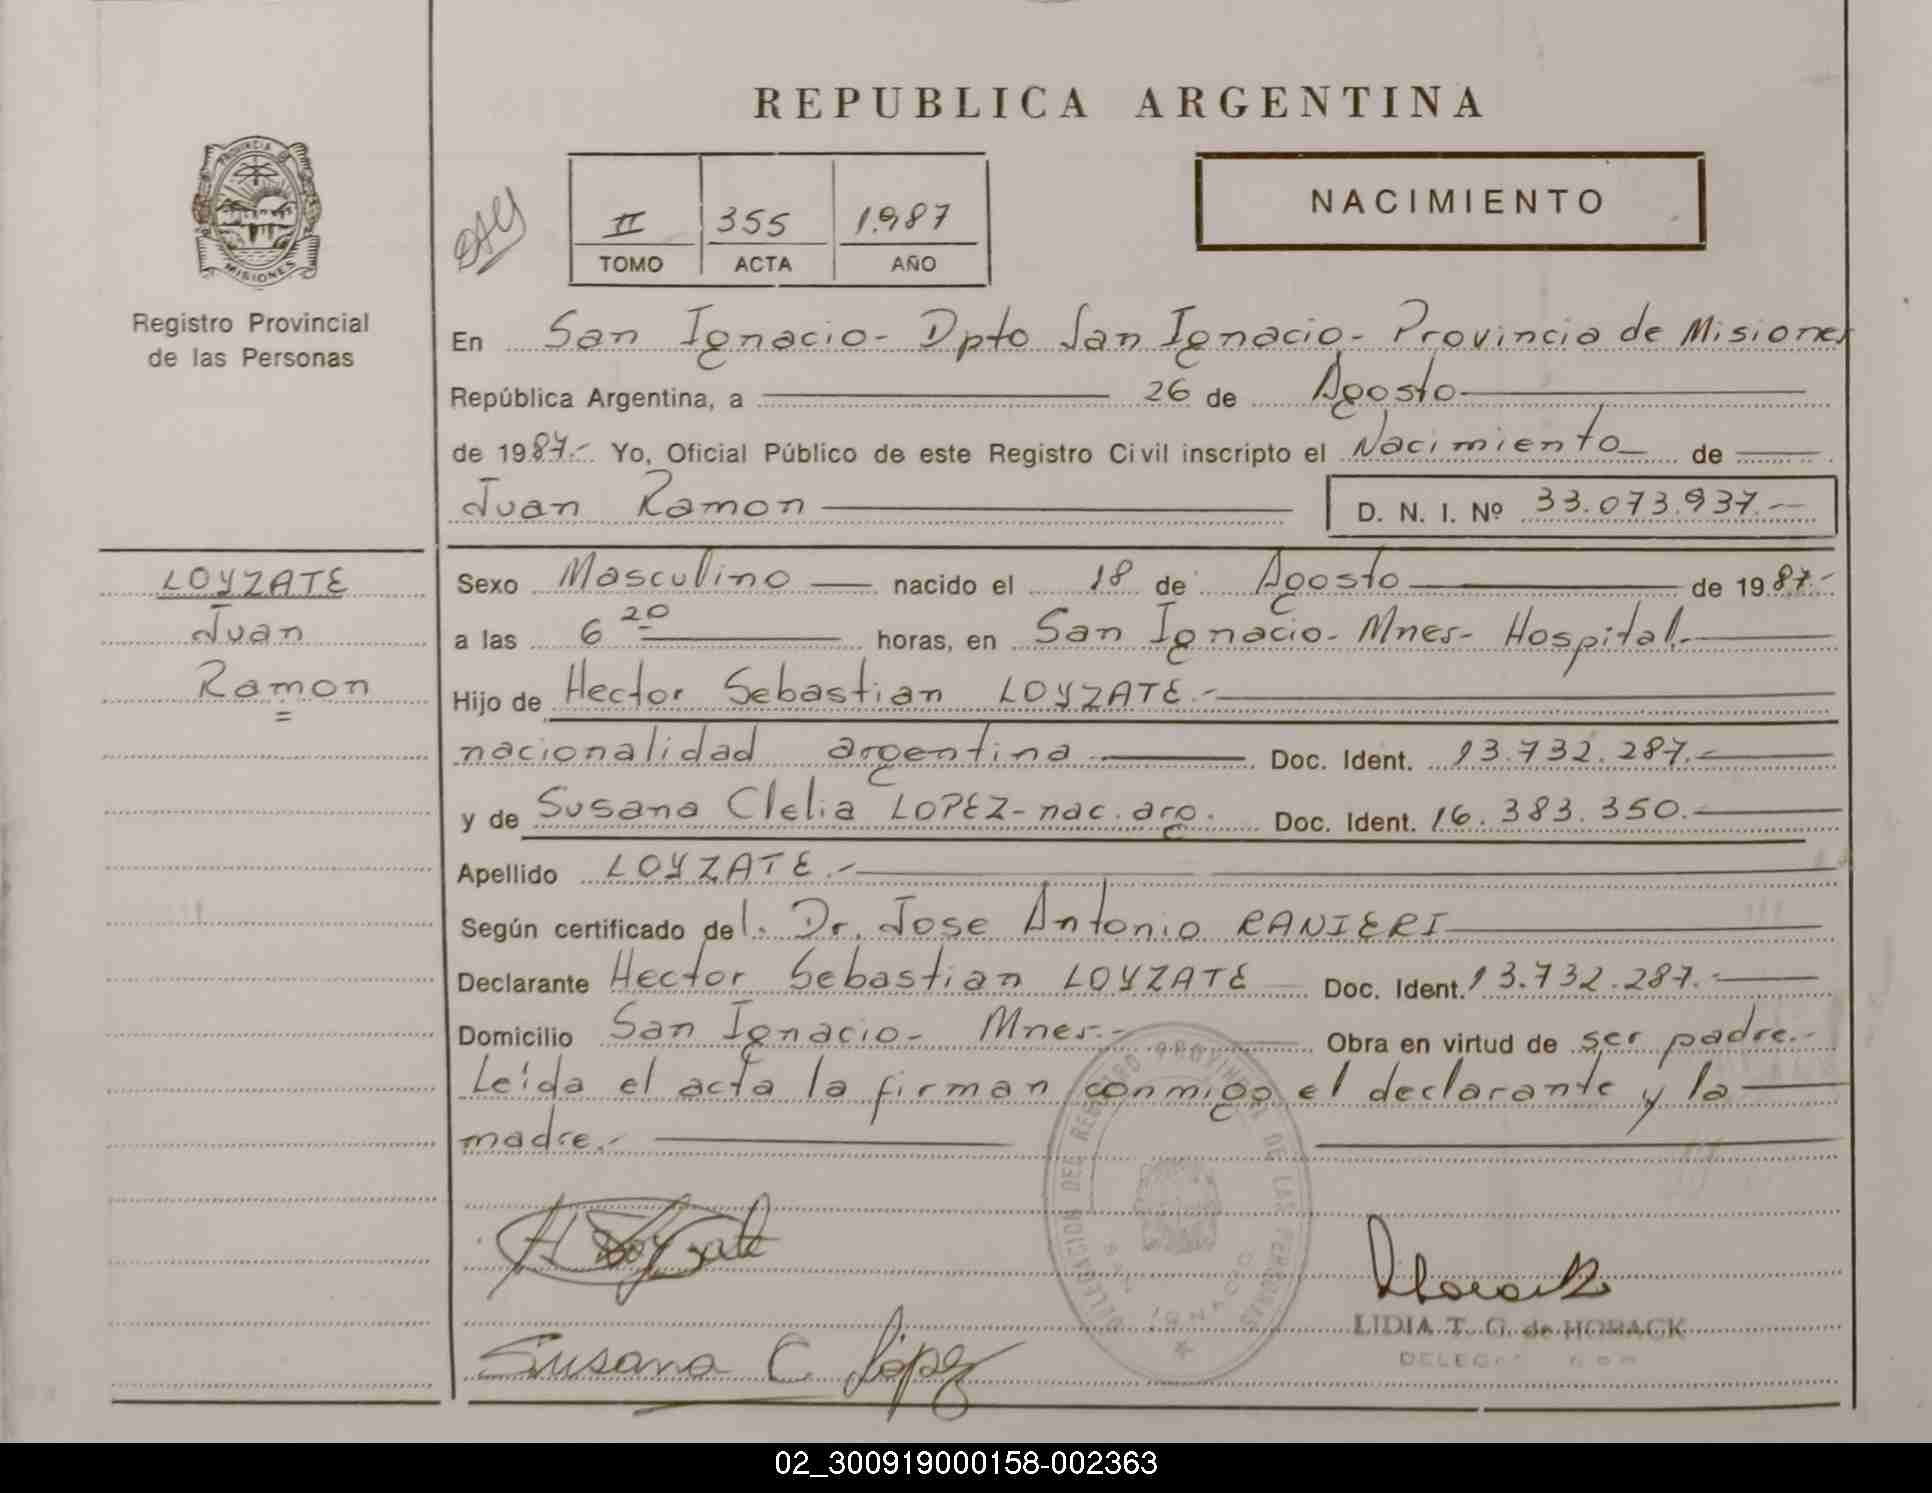 REPUBLICA ARGENTINA
PROVINCIA DE
MISIONES
Registro Provincial
de las Personas
II 355 1987
TOMO ACTA AÑO
NACIMIENTO
En San Ignacio- Dpto San Ignacio- Provincia de Misiones
República Argentina, a 26 de Agosto
de 1987.- Yo, Oficial Público de este Registro Civil inscripto el Nacimiento de
Juan Ramon D. N. I. Nº 33.073.937.-
LOYZATE
Juan
Ramon
Sexo Masculino nacido el 18 de Agosto de 1987.-
a las 6 20 horas, en San Ignacio- Mnes- Hospital.-
Hijo de Hector Sebastian LOYZATE.-
nacionalidad argentina Doc. Ident. 13.732.287.-
y de Susana Clelia LOPEZ- nac. arg. Doc. Ident. 16.383.350.-
Apellido LOYZATE.-
Según certificado del. Dr. Jose Antonio RANIERI
Declarante Hector Sebastian LOYZATE Doc. Ident. 13.732.287.-
Domicilio San Ignacio- Mnes.- Obra en virtud de ser padre.-
Leída el acta la firman conmigo el declarante y la
madre.-
DELEGACION DEL REGISTRO PROVINCIAL DE LAS PERSONAS
SAN IGNACIO
H Loyzate
Horack
LIDIA T. G. de HORACK
Susana C. López
02_300919000158-002363